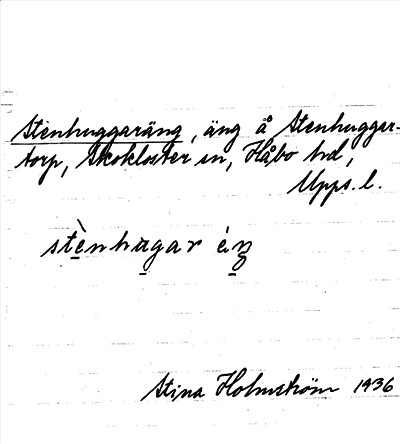 Stenhuggaräng, äng å Stenhuggar-
torp, Skokloster sn, Håbo hd,
Upps. l.
stènhugar éŋ
Stina Holmström 1936